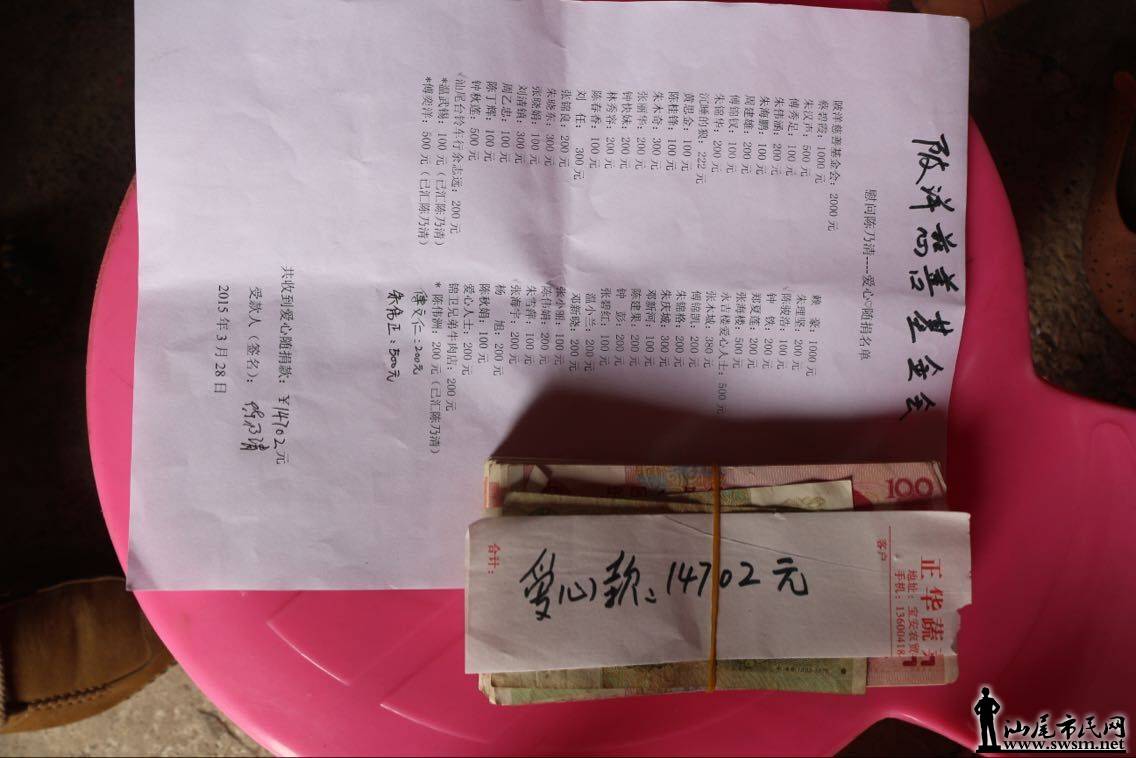 陂洋慈善基金会
慰问陈乃清----爱心♡随捐名单
陂洋慈善基金会：2000元
蔡碧霞：1000元
朱汉声：500元
傅秀足：100元
朱伟涵：200元
朱海鹏：100元
周建雄：200元
傅锦钗：100元
朱锦华：200元
沉睡的狼：222元
黄思金：100元
陈桂锋：100元
朱木奇：300元
张丽华：200元
钟快妹：200元
林秀容：200元
陈春香：100元
刘 任： 300元
张锦良：200元
朱晓东：300元
张晓娟：100元
刘清镇：300元
周乙忠：100元
陈丁辉：100元
钟秋莲：500元
√汕尾台铃车行余志远：200元
*温武锡：100元（已汇陈乃清）
*傅奕洋：500元（已汇陈乃清）
赖 豪：1000元
朱理坚：200元
√陈骏浩：100元
钟 铁：200元
郑夏莲：200元
张海楼：500元
永吉楼爱心人士：500元
张木城：380元
傅锦凯：200元
朱锦桥：200元
朱庆城：300元
邓新河：100元
陈建果：200元
钟 彭：200元
张碧红：100元
温小兰：200元
邓新晓：200元
张小丽：100元
陈伟娟：200元
朱雪蓉：100元
√张海宇：200元
杨 旭：200元
陈秋娟：100元
爱心人士：200元
锦卫兄弟牛肉店：200元
* 陈伟洲：200元（已汇陈乃清）
傅文仁：200元
朱伟正：500元
共收到爱心随捐款：¥14702元
受款人（签名）：陈乃清
2015年3月28日
100
正华蔬
地址：宝安农贸
手机：13600418
客户
爱心款：14702元
合计：
汕尾市民网
www.swsm.net